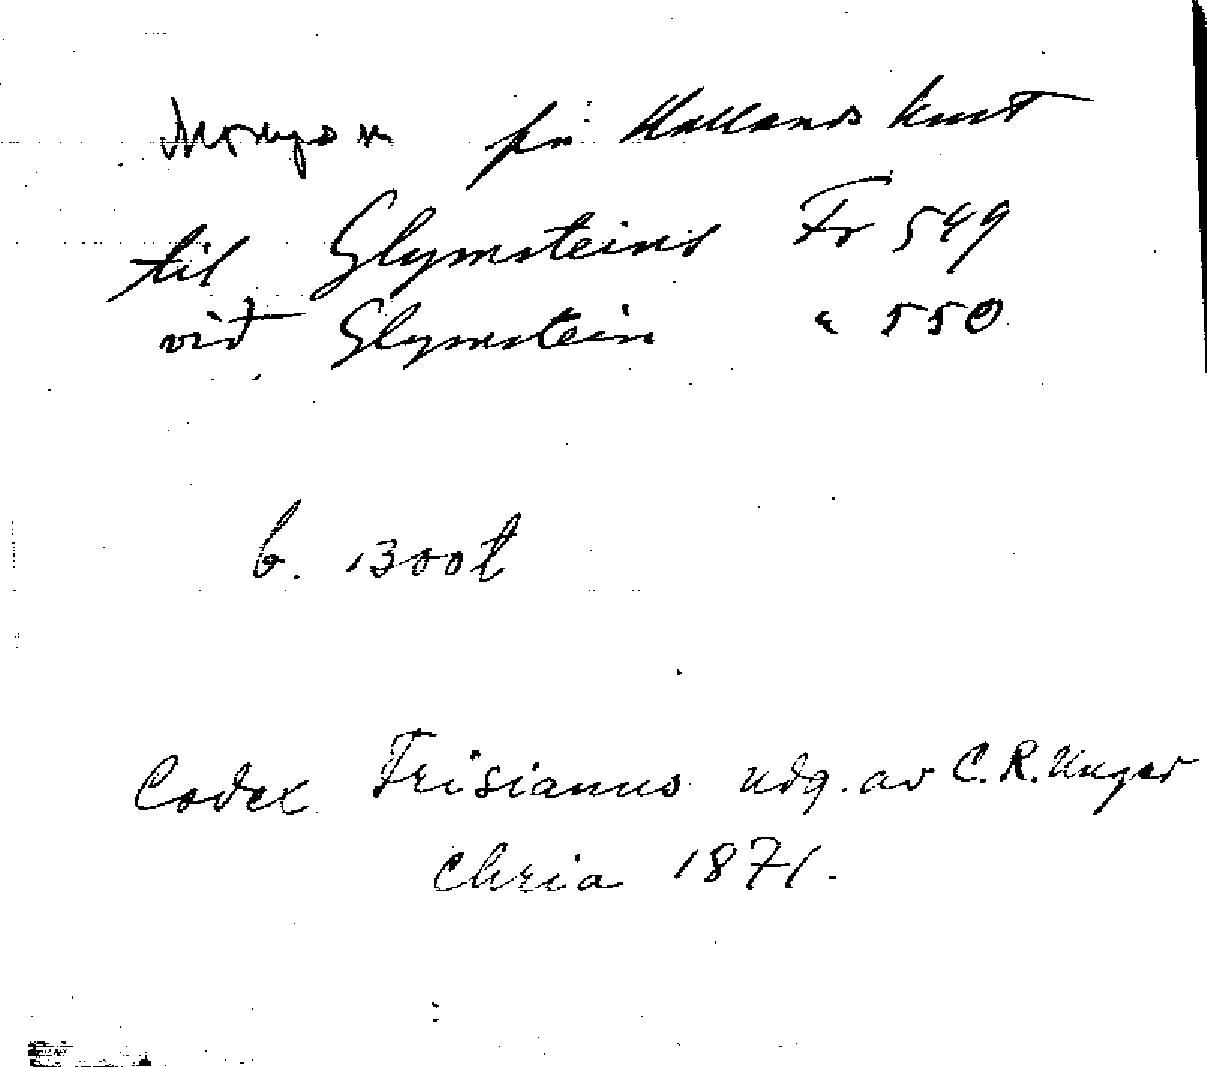 på Hallands kust
til Glymsteins Fr 549
við Glymstein " 550
b. 1300t
Codex Frisianus udg. av C. R. Unger
Chria 1871.